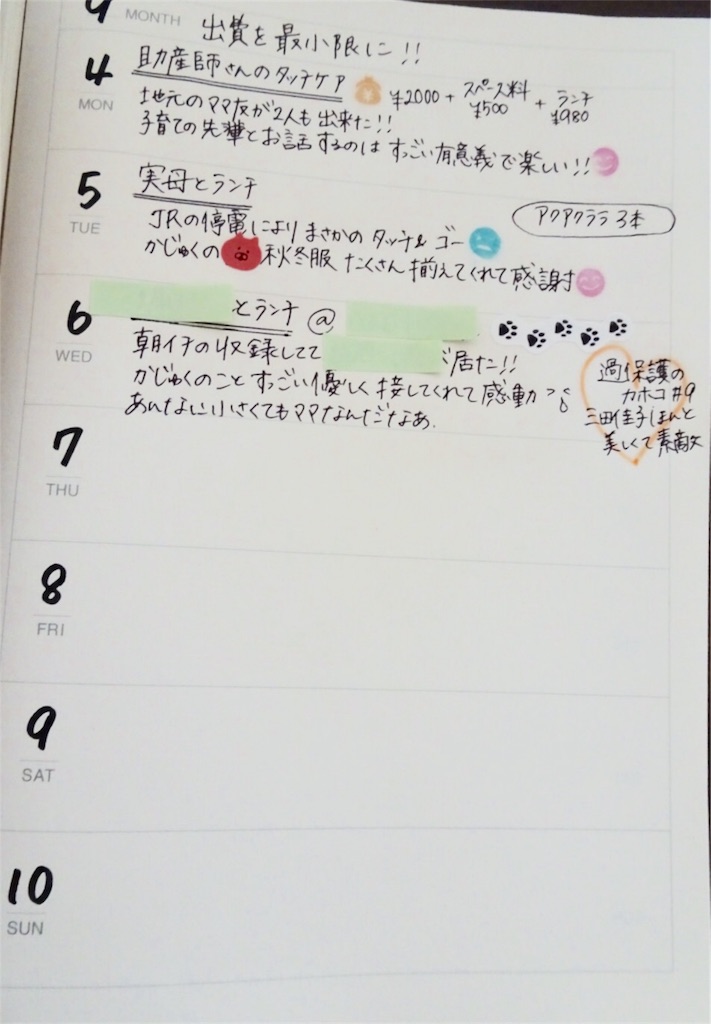 9 MONTH 出費を最小限に!!
4 MON 助産師さんのタッチケア ¥ ¥2000 + スペース料 ¥500 + ランチ ¥980
地元のママ友が2人も出来た!!
子育ての先輩とお話するのはすっごい有意義で楽しい!!
5 TUE 実母とランチ
アクアクララ3本
JRの停電によりまさかのタッチ&ゴー
かじゅくの 秋冬服 たくさん揃えてくれて感謝
6 WED とランチ @
朝イチの収録してて が居た!!
かじゅくのことすっごい優しく接してくれて感動
あんなに小さくてもママなんだなあ.
過保護の
カホコ#9
三田佳子ほんと
美しくて素敵
7 THU
8 FRI
9 SAT
10 SUN